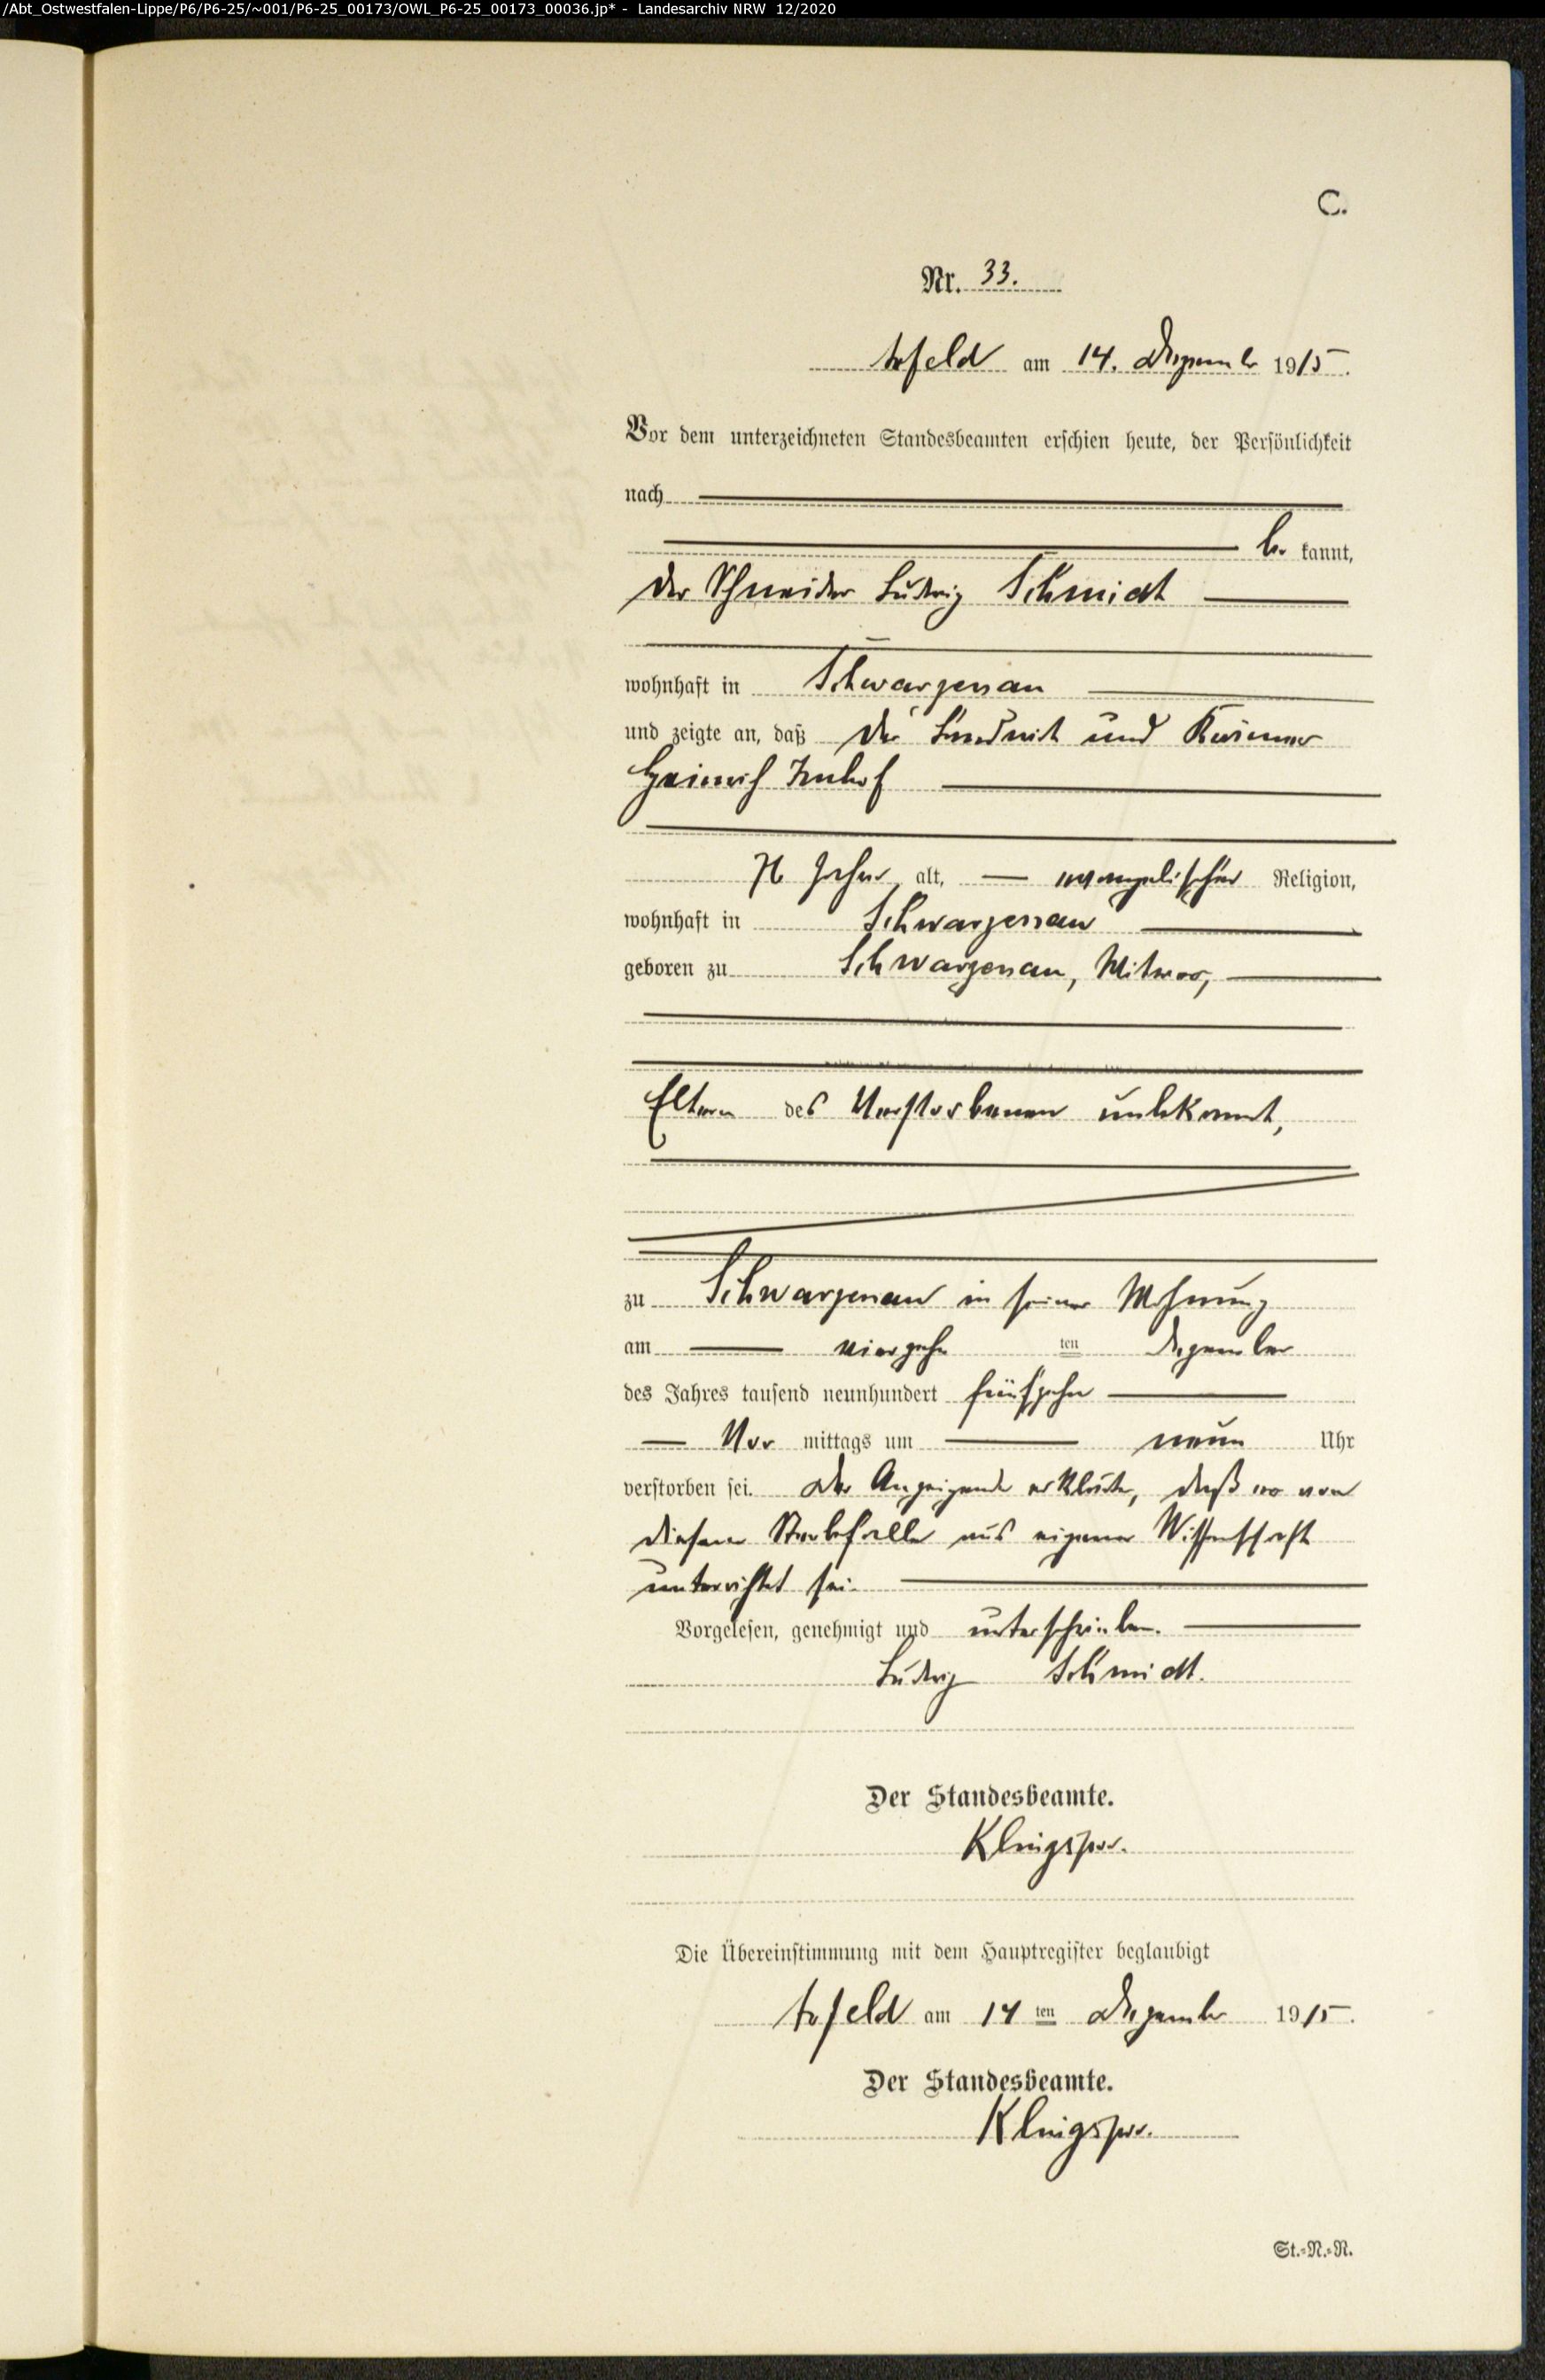 /Abt_Ostwestfalen-Lippe/P6/P6-25/~001/P6-25_00173/OWL_P6-25_00173_00036.jp* - Landesarchiv NRW 12/2020
C.
Nr. 33.
am 14. Dezember 1915.
Vor dem unterzeichneten Standesbeamten erschien heute, der Persönlichkeit
nach
be kannt,
der Schneider Ludwig Schmidt
wohnhaft in Schwarzenau
und zeigte an, daß der Landwirt und
Heinrich Imhof
Jahre alt, evangelischer Religion,
wohnhaft in Schwarzenau
geboren zu Schwarzenau, Witwer,
Eltern des Verstorbenen unbekannt,
zu Schwarzenau in seiner Wohnung
am vierzehn ten Dezember
des Jahres tausend neunhundert fünfzehn
Vor mittags um neun Uhr
verstorben sei. Der Anzeigende erklärte, daß er von
diesem Sterbefalle aus eigener Wissenschaft
unterrichtet sei.
Vorgelesen, genehmigt und unterschrieben.
Ludwig Schmidt.
Der Standesbeamte.
Klingspor.
Die Übereinstimmung mit dem Hauptregister beglaubigt
am 14 ten Dezember 1915.
Der Standesbeamte.
Klingspor.
St.-N.-R.